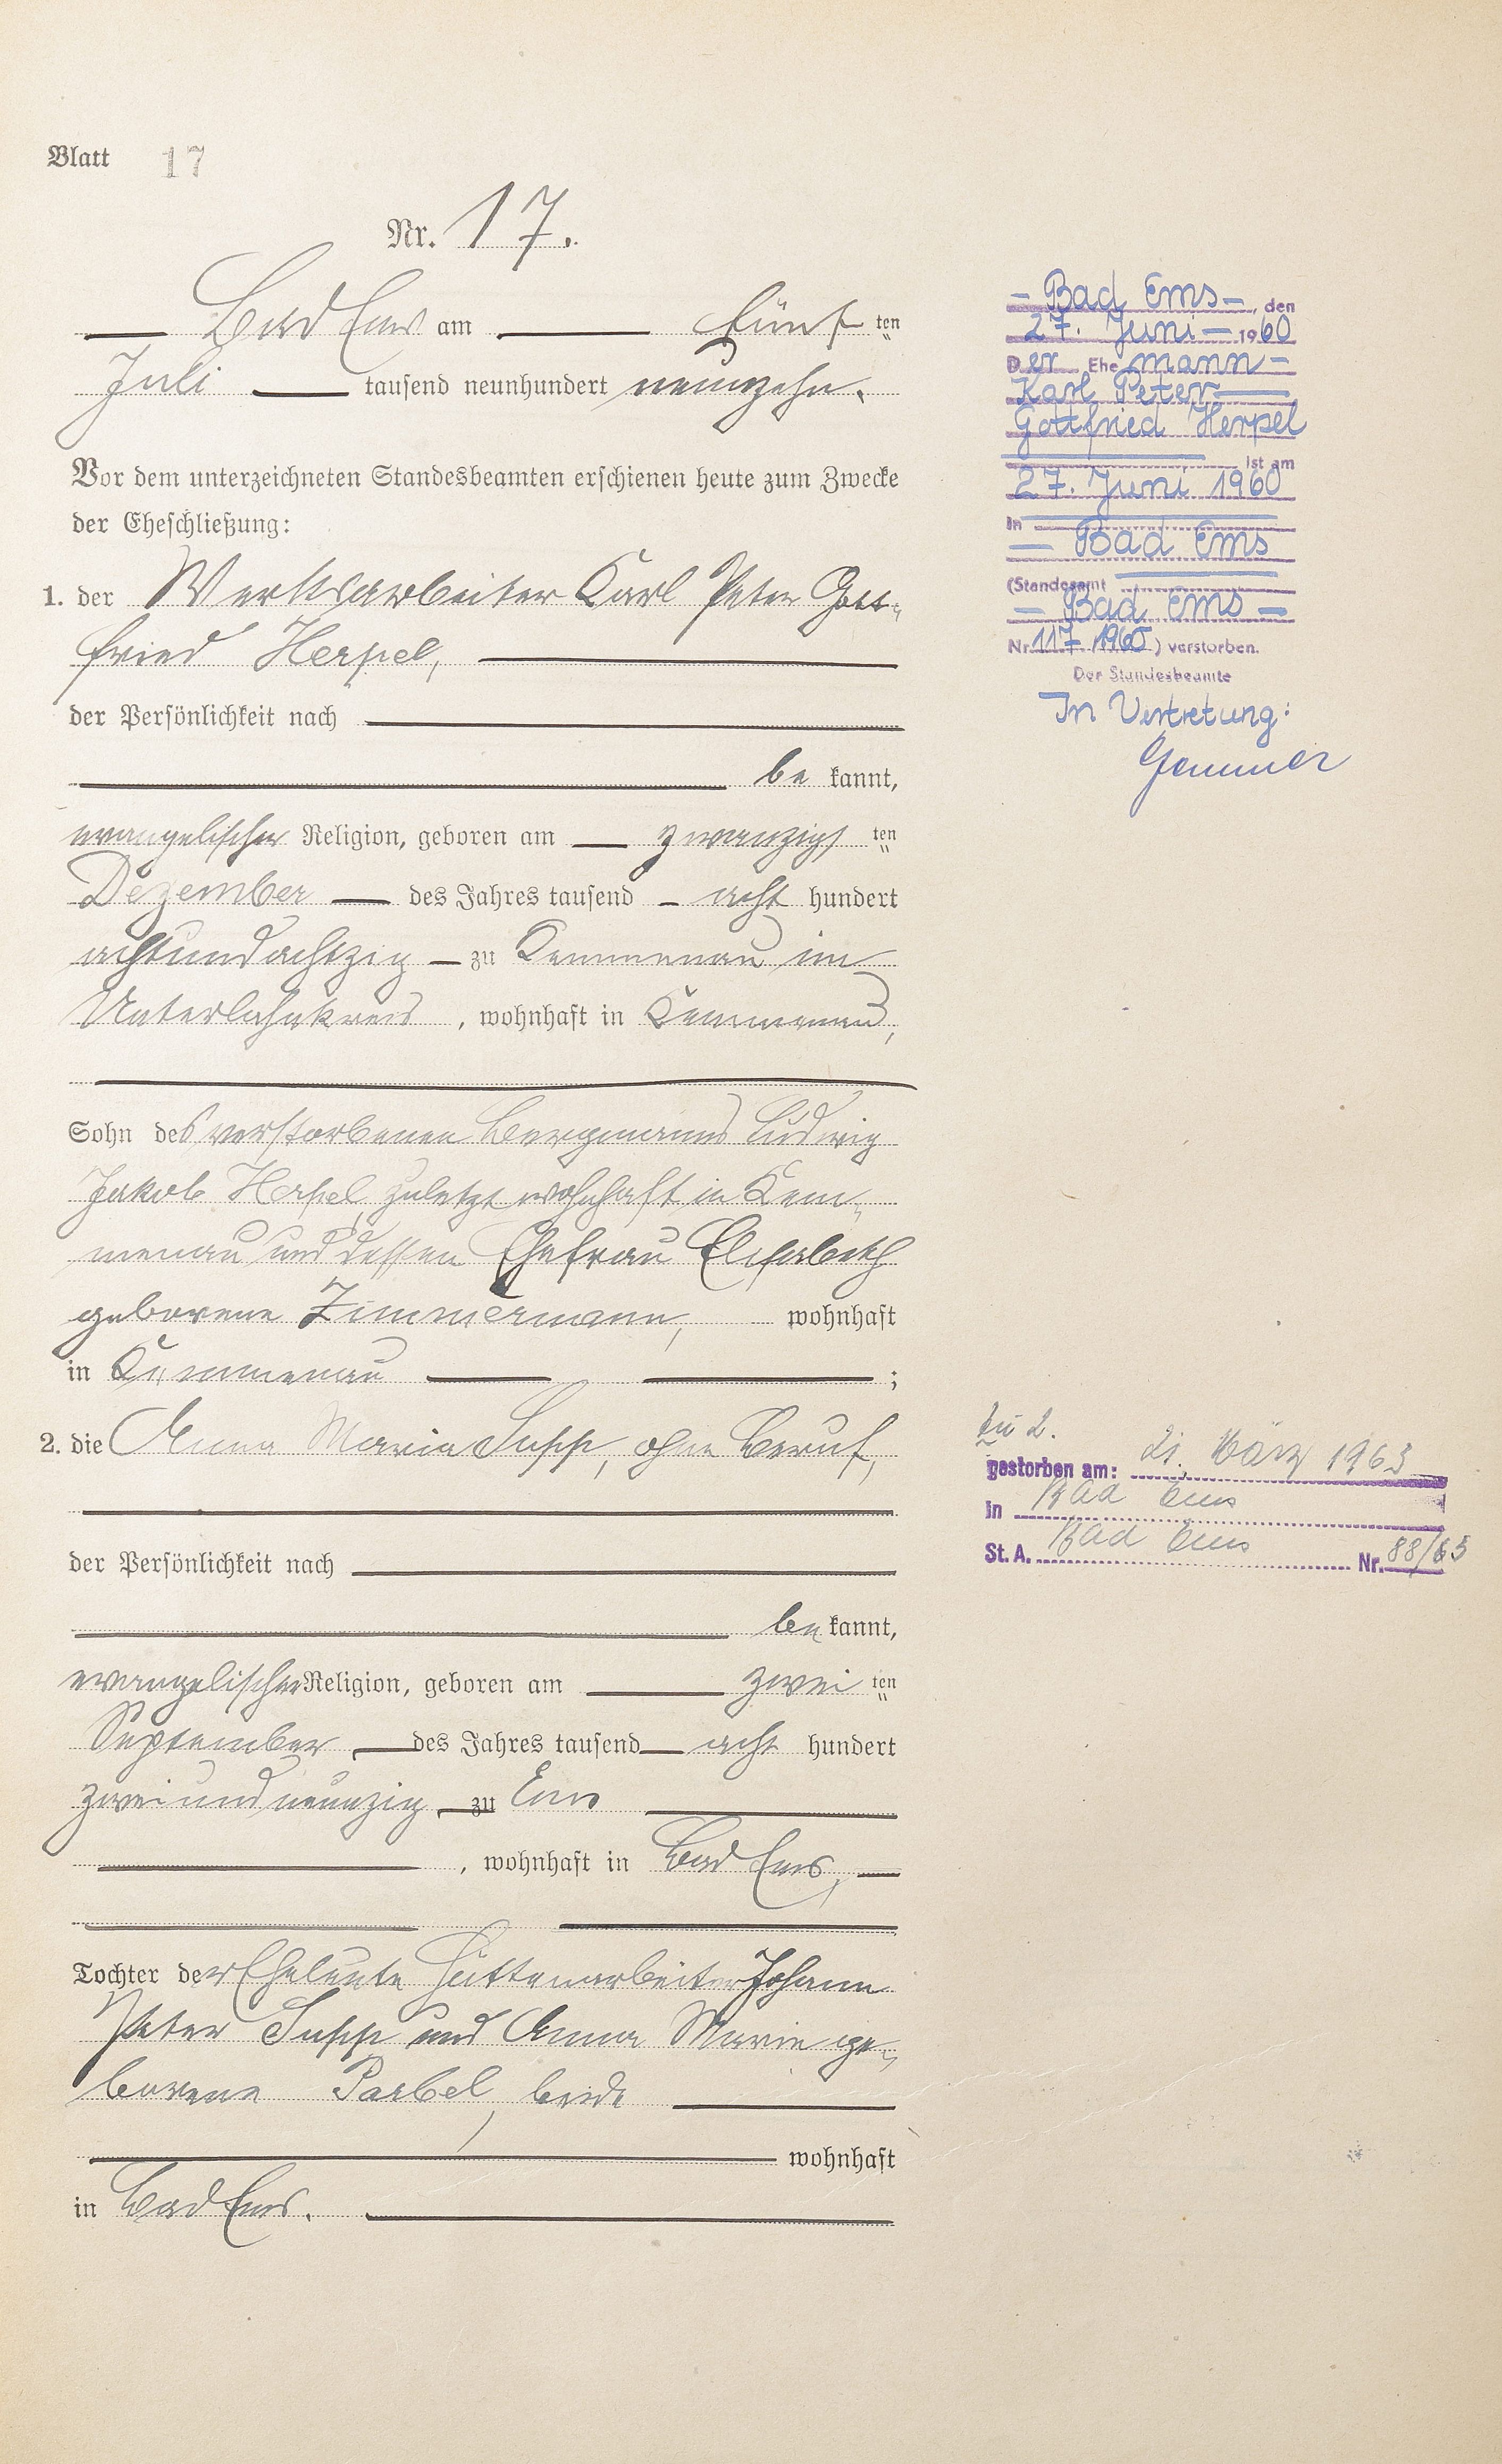 Blatt 17
Nr. 17.
Bad Ems am fünf ten
Juli tausend neunhundert neunzehn.
Vor dem unterzeichneten Standesbeamten erschienen heute zum Zwecke
der Eheschließung:
1. der Werksarbeiter Karl Peter Gott-
fried Herpel,
der Persönlichkeit nach
be kannt,
evangelischer Religion, geboren am zwanzigs ten
Dezember des Jahres tausend acht hundert
achtundachtzig zu Kemmenau im
Unterlahnkreis, wohnhaft in Kemmenau,
Sohn des verstorbenen Bergmanns Ludwig
Jakob Herpel, zuletzt wohnhaft in Kem-
menau und dessen Ehefrau Elisabeth
geborene Zimmermann, wohnhaft
in Kemmenau ;
2. die Anna Maria Supp, ohne Beruf,
der Persönlichkeit nach
be kannt,
evangelischer Religion, geboren am zwei ten
September des Jahres tausend acht hundert
zweiundneunzig zu Ems
, wohnhaft in Bad Ems,
Tochter der Eheleute Hüttenarbeiter Johann
Peter Supp und Anna Marie ge-
borene Pasbel, beide
wohnhaft
in Bad Ems.
- Bad Ems -, den
27. Juni - 1960
Der Ehemann -
Karl Peter
Gottfried Herpel
ist am
27. Juni 1960
in
- Bad Ems
(Standesamt
- Bad Ems -
Nr. 117/1960) verstorben.
Der Standesbeamte
In Vertretung:
Gemmer
Zu 2.
gestorben am: 21. März 1963
in Bad Ems
St. A. Bad Ems Nr. 88/63